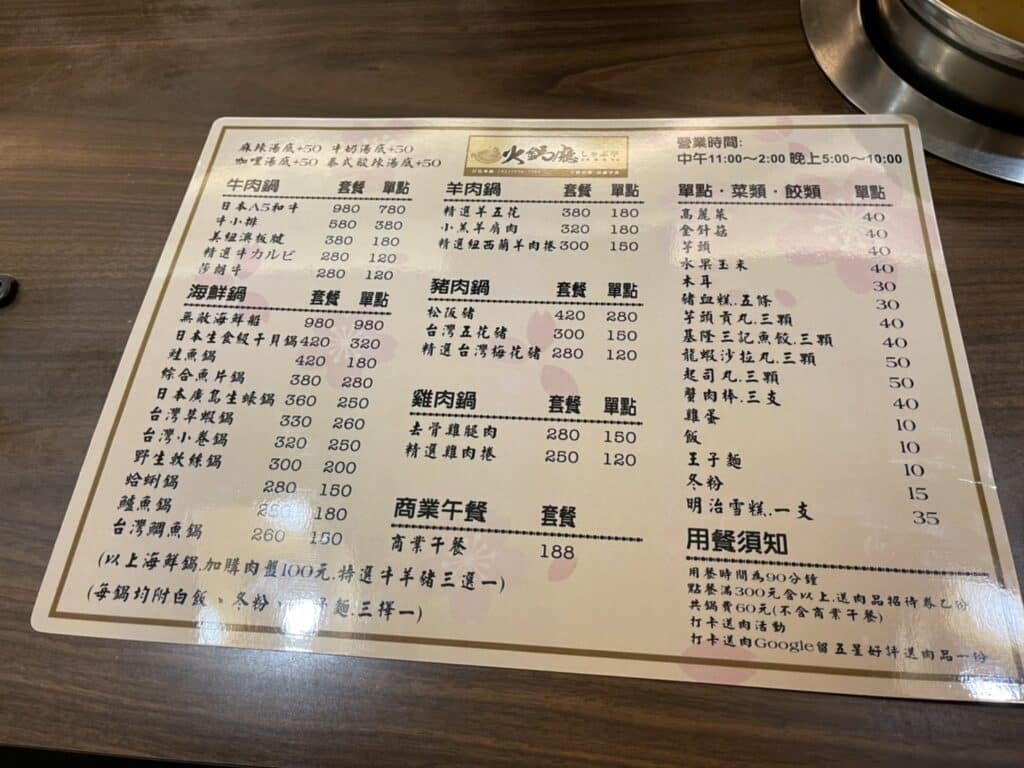 麻辣湯底+50 牛奶湯底+50
咖哩湯底+50 泰式酸辣湯底+50
牛肉鍋 套餐 單點
日本A5和牛 980 780
牛小排 580 380
美紐澳板腱 380 180
精選牛カルビ 280 120
莎朗牛 280 120
海鮮鍋 套餐 單點
無敵海鮮船 980 980
日本生食級干貝鍋 420 320
鮭魚鍋 420 180
綜合魚片鍋 380 280
日本廣島生蠔鍋 360 250
台灣草蝦鍋 330 260
台灣小卷鍋 320 250
野生軟絲鍋 300 200
蛤蜊鍋 280 150
鱸魚鍋 180
台灣鯛魚鍋 260 150
(以上海鮮鍋.加購肉盤100元.特選牛羊豬三選一)
(每鍋均附白飯、冬粉、 麵.三擇一)
火鍋應
羊肉鍋 套餐 單點
精選羊五花 380 180
小羔羊肩肉 320 180
精選紐西蘭羊肉捲 300 150
豬肉鍋 套餐 單點
松阪豬 420 280
台灣五花豬 300 150
精選台灣梅花豬 280 120
雞肉鍋 套餐 單點
去骨雞腿肉 280 150
精選雞肉捲 250 120
商業午餐 套餐
商業午餐 188
營業時間:
中午11:00~2:00 晚上5:00~10:00
單點・菜類・餃類 單點
高麗菜 40
金針菇 40
芋頭 40
水果玉米 40
木耳 30
豬血糕.五條 30
芋頭貢丸.三顆 40
基隆三記魚餃.三顆 40
龍蝦沙拉丸.三顆 50
起司丸.三顆 50
蟹肉棒.三支 40
雞蛋 10
飯 10
王子麵 10
冬粉 15
明治雪糕.一支 35
用餐須知
用餐時間為90分鐘
點餐滿300元含以上.送肉品招待券乙份
共鍋費60元(不含商業午餐)
打卡送肉活動
打卡送肉Google留五星好評送肉品一份